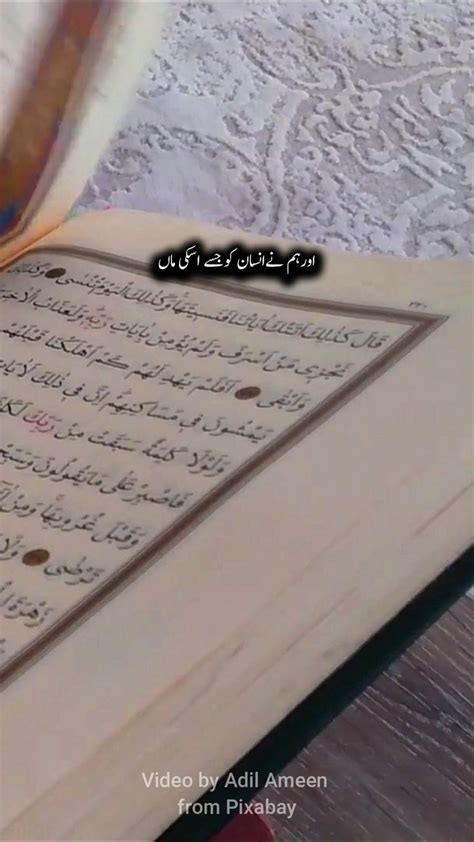 اور ہم نے انسان کو جسے اسکی ماں
٣٢٠
قَالَ كَذٰلِكَ اَتَتْكَ اٰيَاتُنَا فَنَسِيتَهَا وَكَذٰلِكَ الْيَوْمَ تُنْسٰى
نَجْزِى مَنْ اَسْرَفَ وَلَمْ يُؤْمِنْ بِاٰيَاتِ رَبِّهِ وَلَعَذَابُ
وَاَبْقٰى اَفَلَمْ يَهْدِ لَهُمْ كَمْ اَهْلَكْنَا قَبْلَهُمْ
يَمْشُونَ فِى مَسَاكِنِهِمْ اِنَّ فِى ذٰلِكَ
وَلَوْلَا كَلِمَةٌ سَبَقَتْ مِنْ رَبِّكَ
فَاصْبِرْ عَلٰى مَا يَقُولُونَ
وَقَبْلَ غُرُوبِهَا وَمِنْ
تَرْضٰى وَلَا
زَهْرَةَ
Video by Adil Ameen
from Pixabay